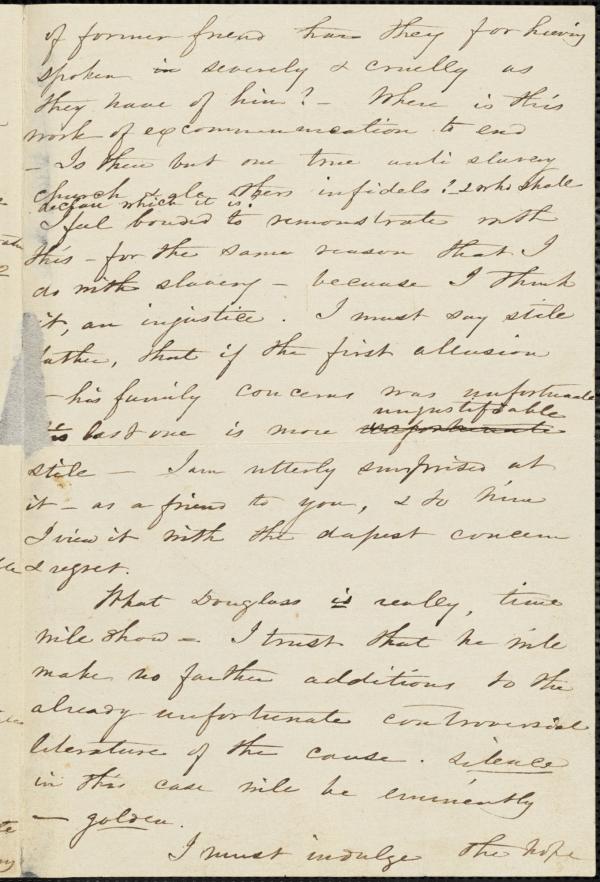 of former friend have they for having
spoken in severely & cruelly as
they have of him? – Where is this
work of excommunication to end
– Is there but one true anti slavery
church & all others infidels? – & who shall
declare which it is?
I feel bound to remonstrate with
this – for the same reason that I
do with slavery – because I think
it, an injustice. I must say still
farther, that if the first allusion
his family concerns was unfortunate
unjustifiable
last one is more unfortunate
still – I am utterly surprised at
it – as a friend to you, & to him
I view it with the deepest concern
& regret.
What Douglass is really, time
will show – I trust that he will
make no farther additions to the
already unfortunate controversial
literature of the cause. Silence
in this case will be eminently
– golden.
I must indulge the hope